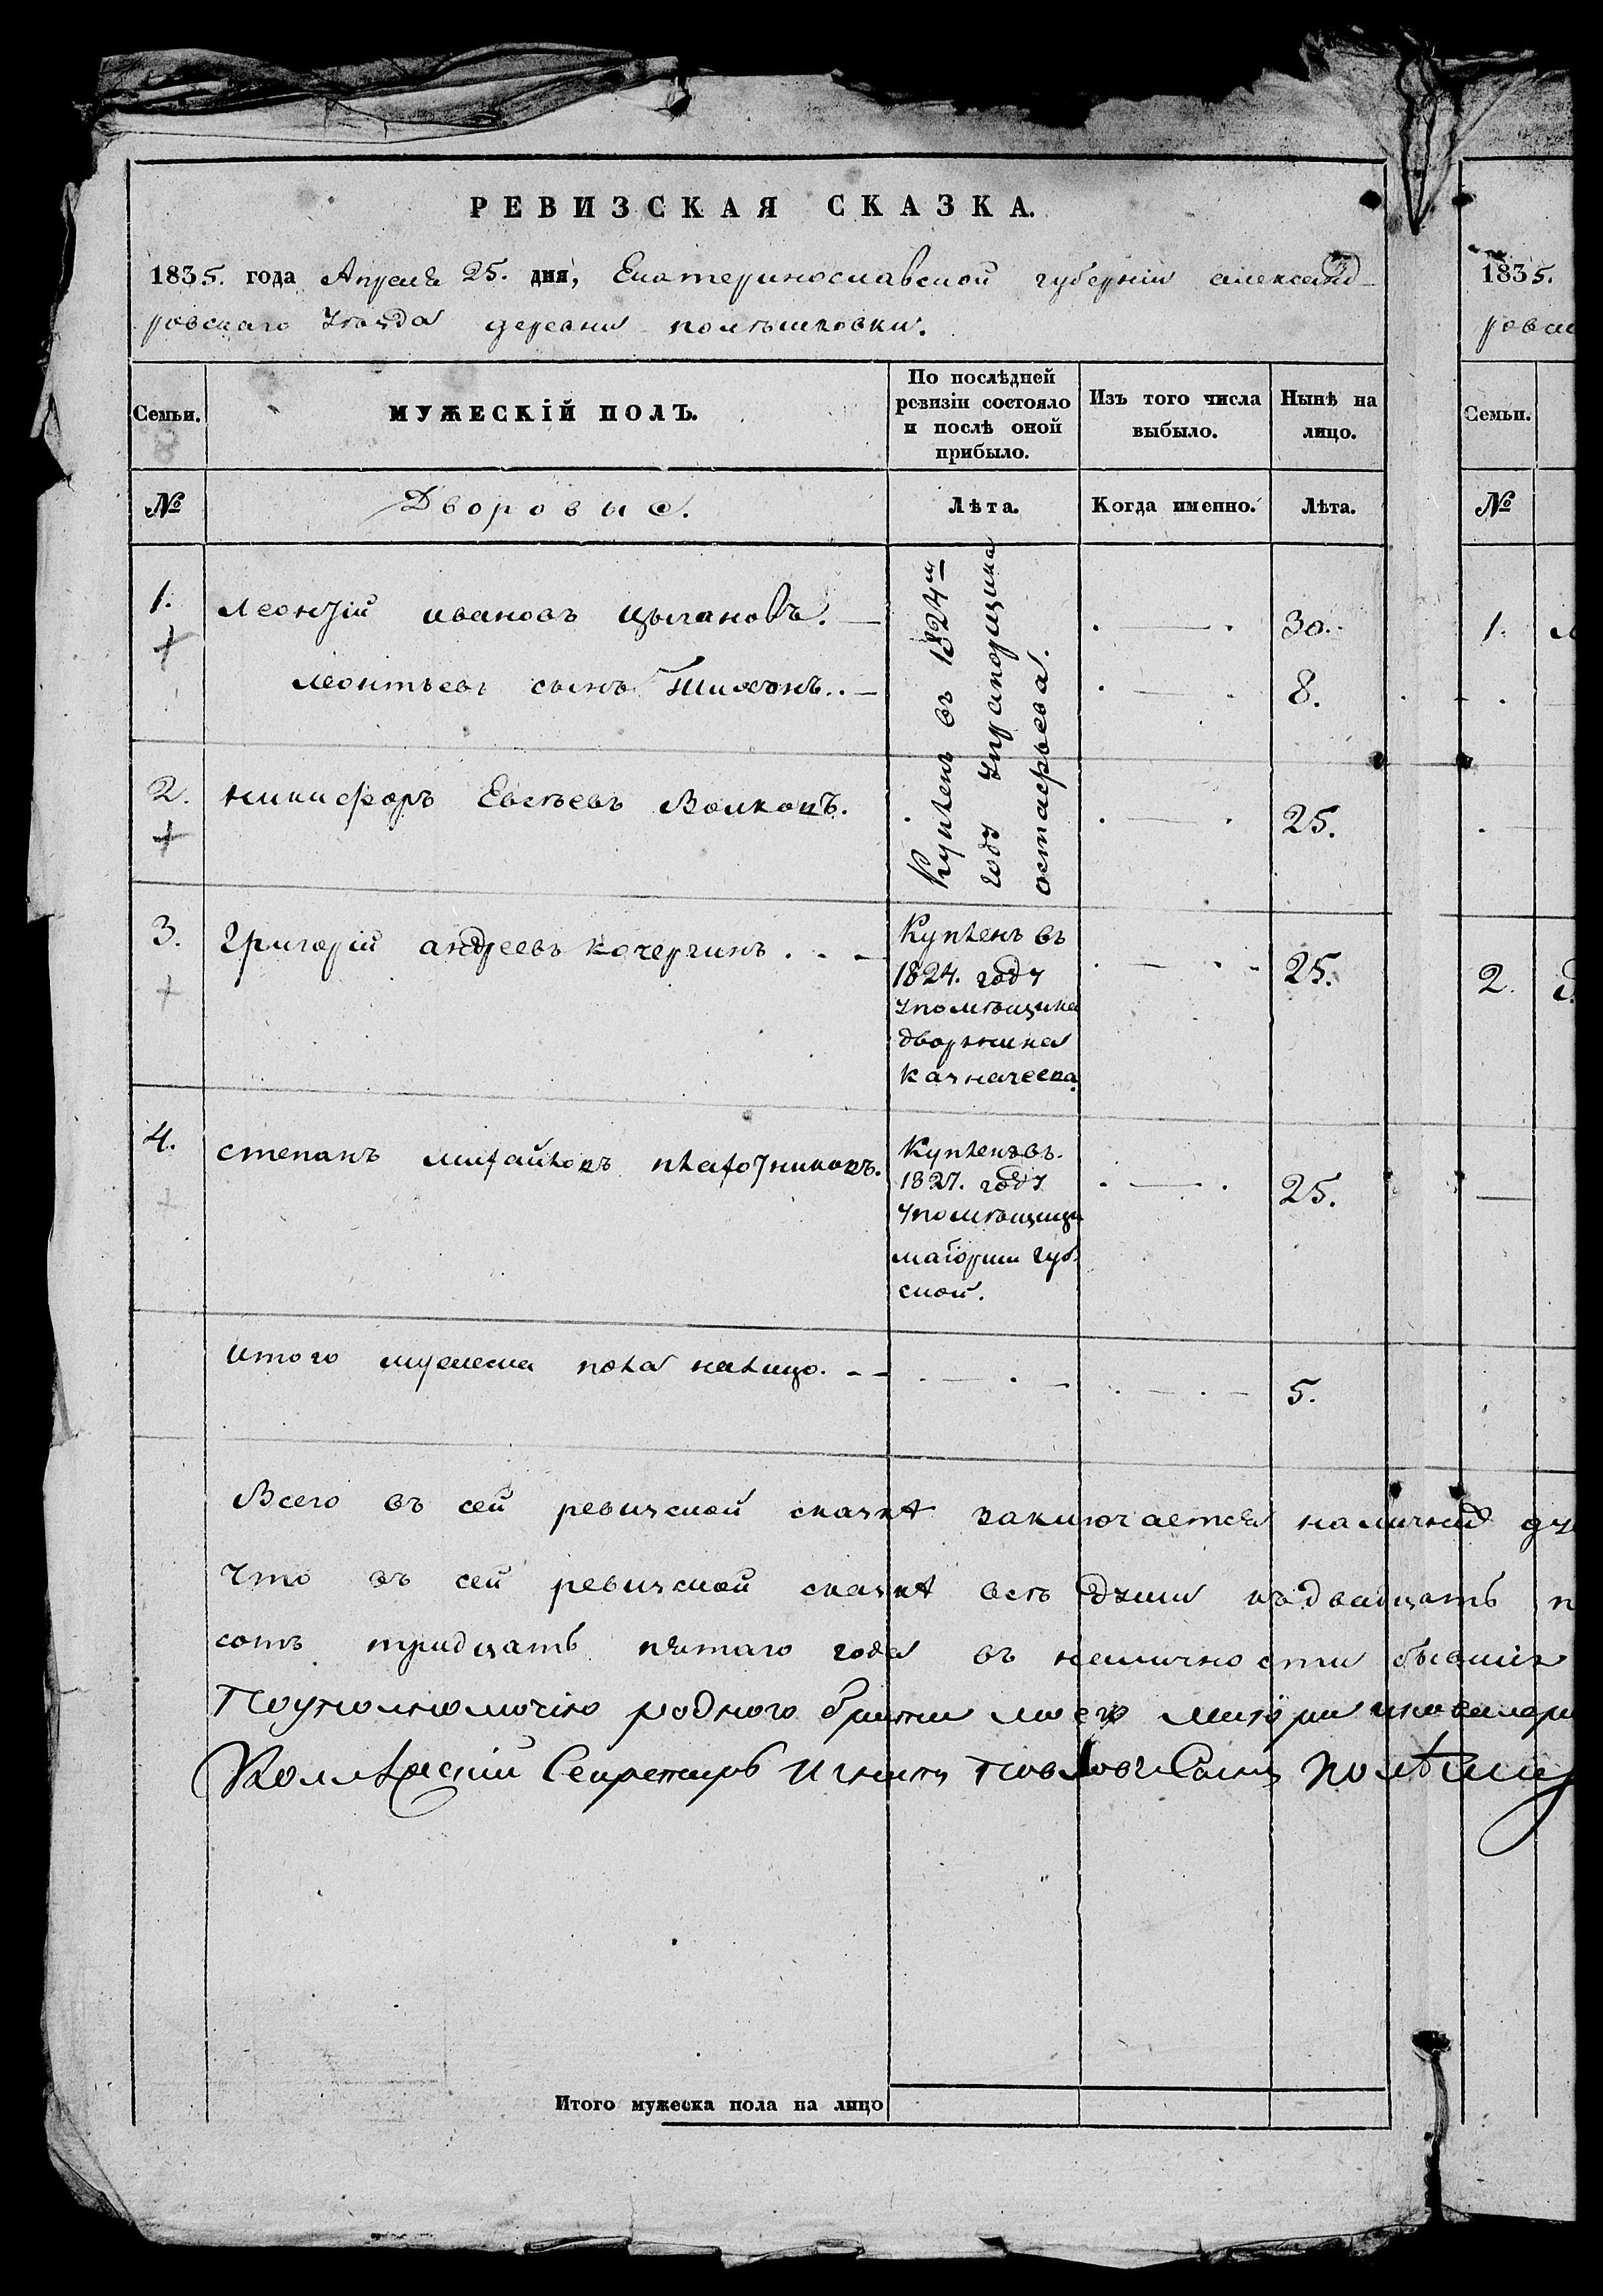 РЕВИЗСКАЯ СКАЗКА.
1835. года Апреля 25. дня, Екатеринославской губернии александ
ровскаго Уѣзда деревни полѣтиковки.
Семьи.
МУЖЕСКІЙ ПОЛЪ.
По послѣдней
ревизіи состояло
и послѣ оной
прибыло.
Изъ того числа
выбыло.
Нынѣ на
лицо.
№
Дворовые.
Лѣта.
Когда именно.
Лѣта.
1.
Леонтій ивановъ цыгановъ.
30.
Леонтьевъ сынъ
8.
Купленъ въ 1824м
году Упрапорщика
остафьева.
2.
никифоръ Евсѣевъ Волковъ.
25.
3.
Григорій андреевъ кочергинъ
Купленъ въ
1824. году
Упомѣщика
дворянина
казначеева
25.
4.
степанъ михайловъ плахотниковъ.
Купленъ въ.
1827. году
Упомѣщицы
маіорши Губ
ской.
25.
итого мужеска пола налицо.
5.
Всего въ сей ревизской сказкѣ заключается наличныхъ ду
Что въ сей ревизской сказкѣ всѣ души къ двадцать п
сотъ тридцать пятаго года въ наличности бывшія
Поуполномочію родного братни моего маіора икавалера
Коллежскій Секретарь Павловъ Сынъ Полѣти
Итого мужеска пола на лицо
1835.
ровск
Семьи.
№
1.
2.